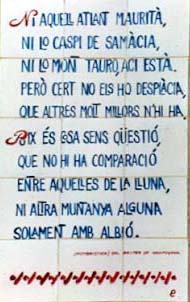 NI AQUELL ATLANT MAURITÀ,
NI LO CASPI DE SAMÀCIA,
NI LO MONT TAURO, ACI ESTÀ.
PERÒ CERT NO ELS HO DESPLÀCIA,
QUE ALTRES MOLT MILLORS N'HI HA.
AIX ÉS COSA SENS QÜESTIÓ,
QUE NO HI HA COMPARACIÓ
ENTRE AQUELLES DE LA LLUNA,
NI ALTRA MUÑANYA ALGUNA
SOLAMENT AMB ALBIÓ.
DEL RECTOR DE
e